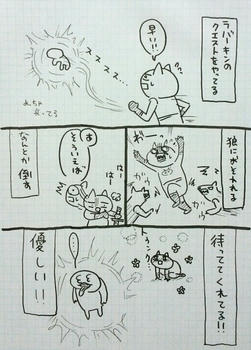 ラバーキンの
クエストをやってる
早い!!
スススス…
めっちゃ
光ってる
狼におそわれる
わー
ガウ
ガウ
はー
はー
あ
そういえば
なんとか倒す
待っててくれてる!!
トゥンク
……
優しい!!